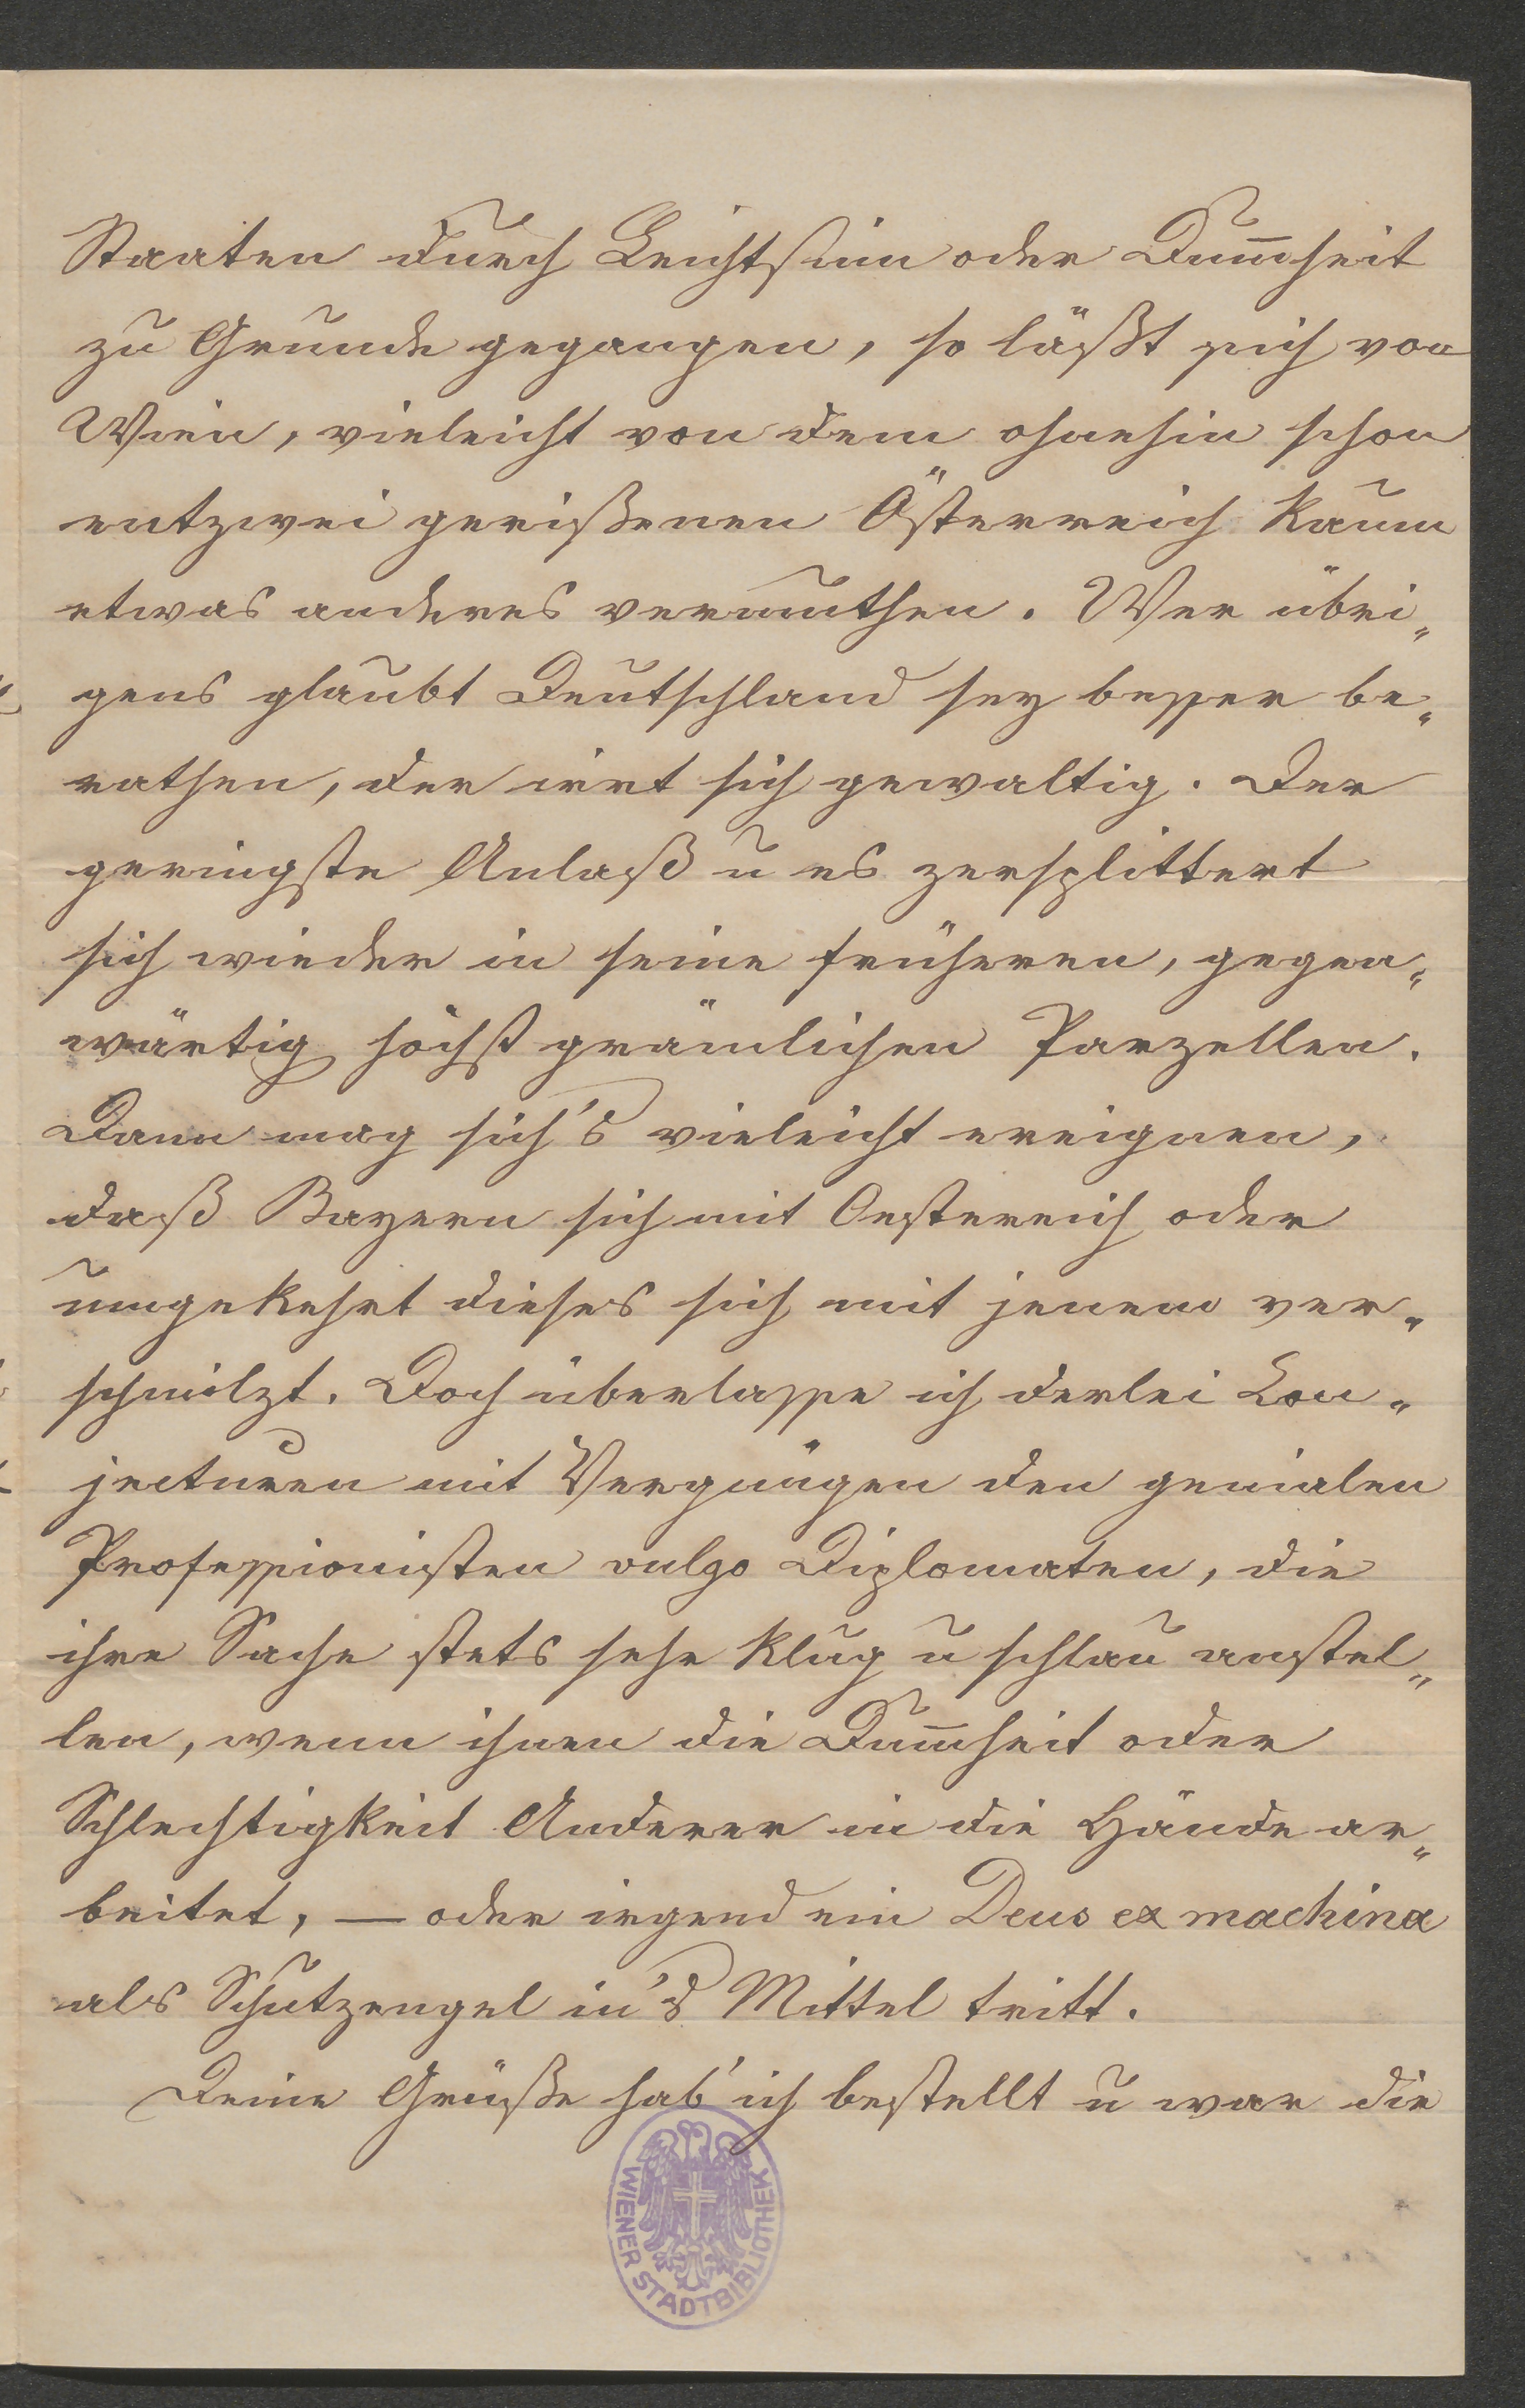 Staaten durch Leichtsinn oder Dum̄heit
zu Grunde gegangen, so läßt sich von
Wien, vieleicht von dem ohnehin schon
entzwei gerißenen Österreich kaum
etwas anderes vermuthen. Wer übri„
gens glaubt Deutschland sey besser be„
rathen, der irrt sich gewaltig. Der
geringste Anlaß u es zersplittert
sich wieder in seine früheren, gegen„
wärtig höchst grämlichen Parzellen.
Dann mag sich's vieleicht ereignen,
daß Bayern sich mit Oestereich oder
umgekehrt dieses sich mit jenem ver„
schmilzt. Doch überlasse ich derlei Con„
jecturen mit Vergnügen den genialen
Professionisten vulgo Diplomaten, die
ihre Sache stets sehr klug u schlau anstel„
len, wenn ihnen die Dum̄heit oder
Schlechtigkeit Anderer in die Hände ar„
beitet, — oder irgend ein Deus ex machina
als Schutzengel in's Mittel tritt.
Deine Grüße hab' ich bestellt u war die
WIENER STADTBIBLIOTHEK